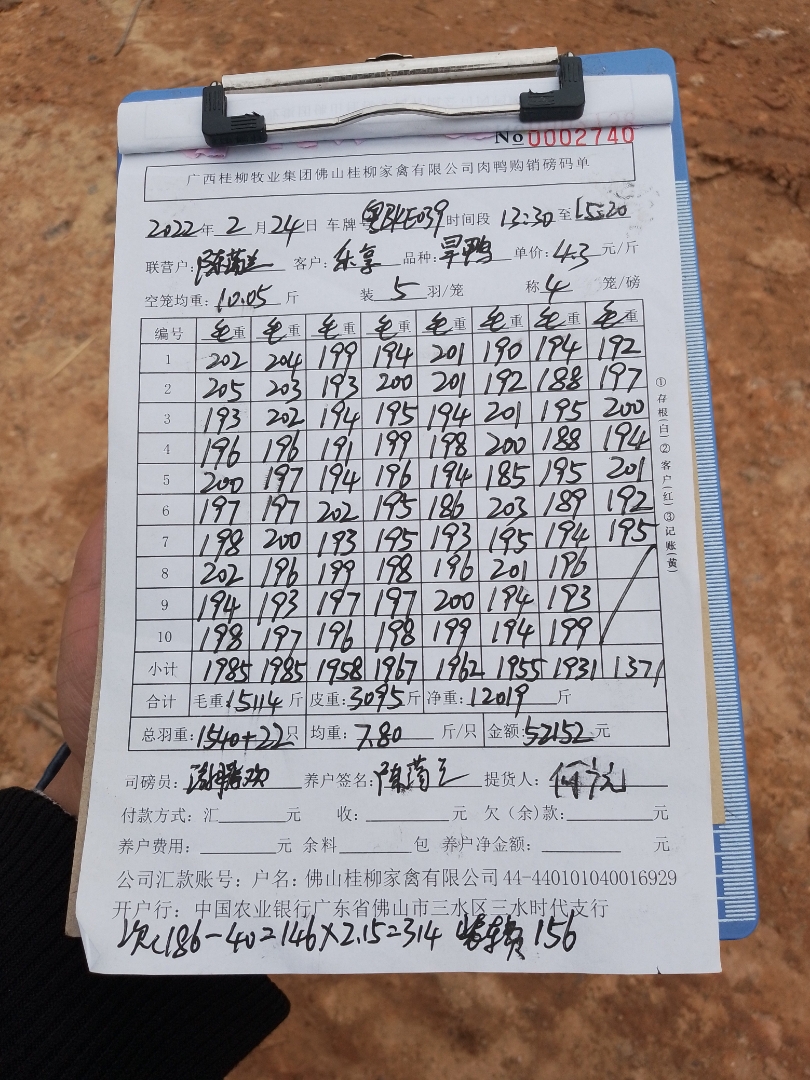 No 0002740
广西桂柳牧业集团佛山桂柳家禽有限公司肉鸭购销磅码单
2022年2月24日 车牌号 粤BKE039 时间段 13:30至15:20
联营户: 陈菊兰 客户: 乐享 品种: 旱鸭 单价: 4.3元/斤
空笼均重: 10.05斤 装5羽/笼 称4笼/磅
编号 毛重 毛重 毛重 毛重 毛重 毛重 毛重 毛重
1 202 204 199 194 201 190 194 192
2 205 203 193 200 201 192 188 197
3 193 202 194 195 194 201 195 200
4 196 196 191 199 198 200 188 194
5 200 197 194 196 194 185 195 201
6 197 197 202 195 186 203 189 192
7 198 200 193 195 193 195 194 195
8 202 196 199 198 196 201 196
9 194 193 197 197 200 194 193
10 198 197 196 198 199 194 199
小计 1985 1985 1958 1967 1962 1955 1931 1371
合计 毛重: 15114斤 皮重: 3095斤 净重: 12019斤
总羽重: 1540+22只 均重: 7.80斤/只 金额: 52152元
司磅员: 养户签名: 提货人:
付款方式: 汇元 收: 元 欠（余）款: 元
养户费用: 元 余料包 养户净金额: 元
公司汇款账号: 户名: 佛山桂柳家禽有限公司 44-440101040016929
开户行: 中国农业银行广东省佛山市三水区三水时代支行
次: 186-40=146×2.15=314 156
①存根(白)②客户(红)③记账(黄)